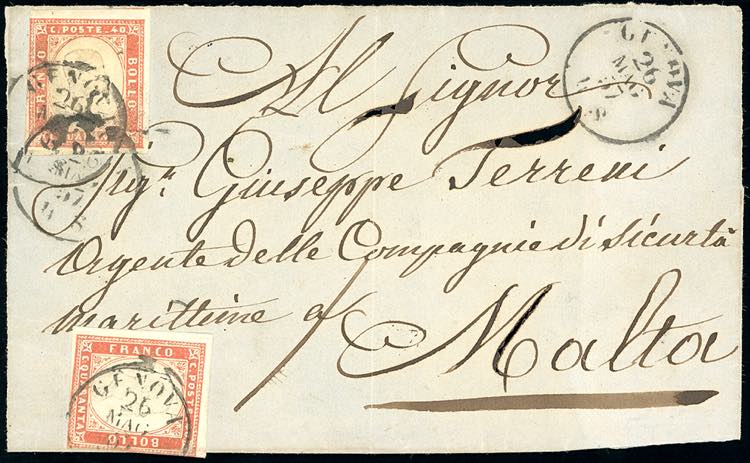 C. POSTE. 40
FRANCO
BOLLO
GENOVA
26
MAG
57
GENOVA
26
MAG
Al Signor
Sigr. Giuseppe Terreni
Agente delle Compagnie di Sicurtà
marittime a
Malta
FRANCO
C. POSTE
C. QUARANTA
BOLLO
GENOVA
26
MAG